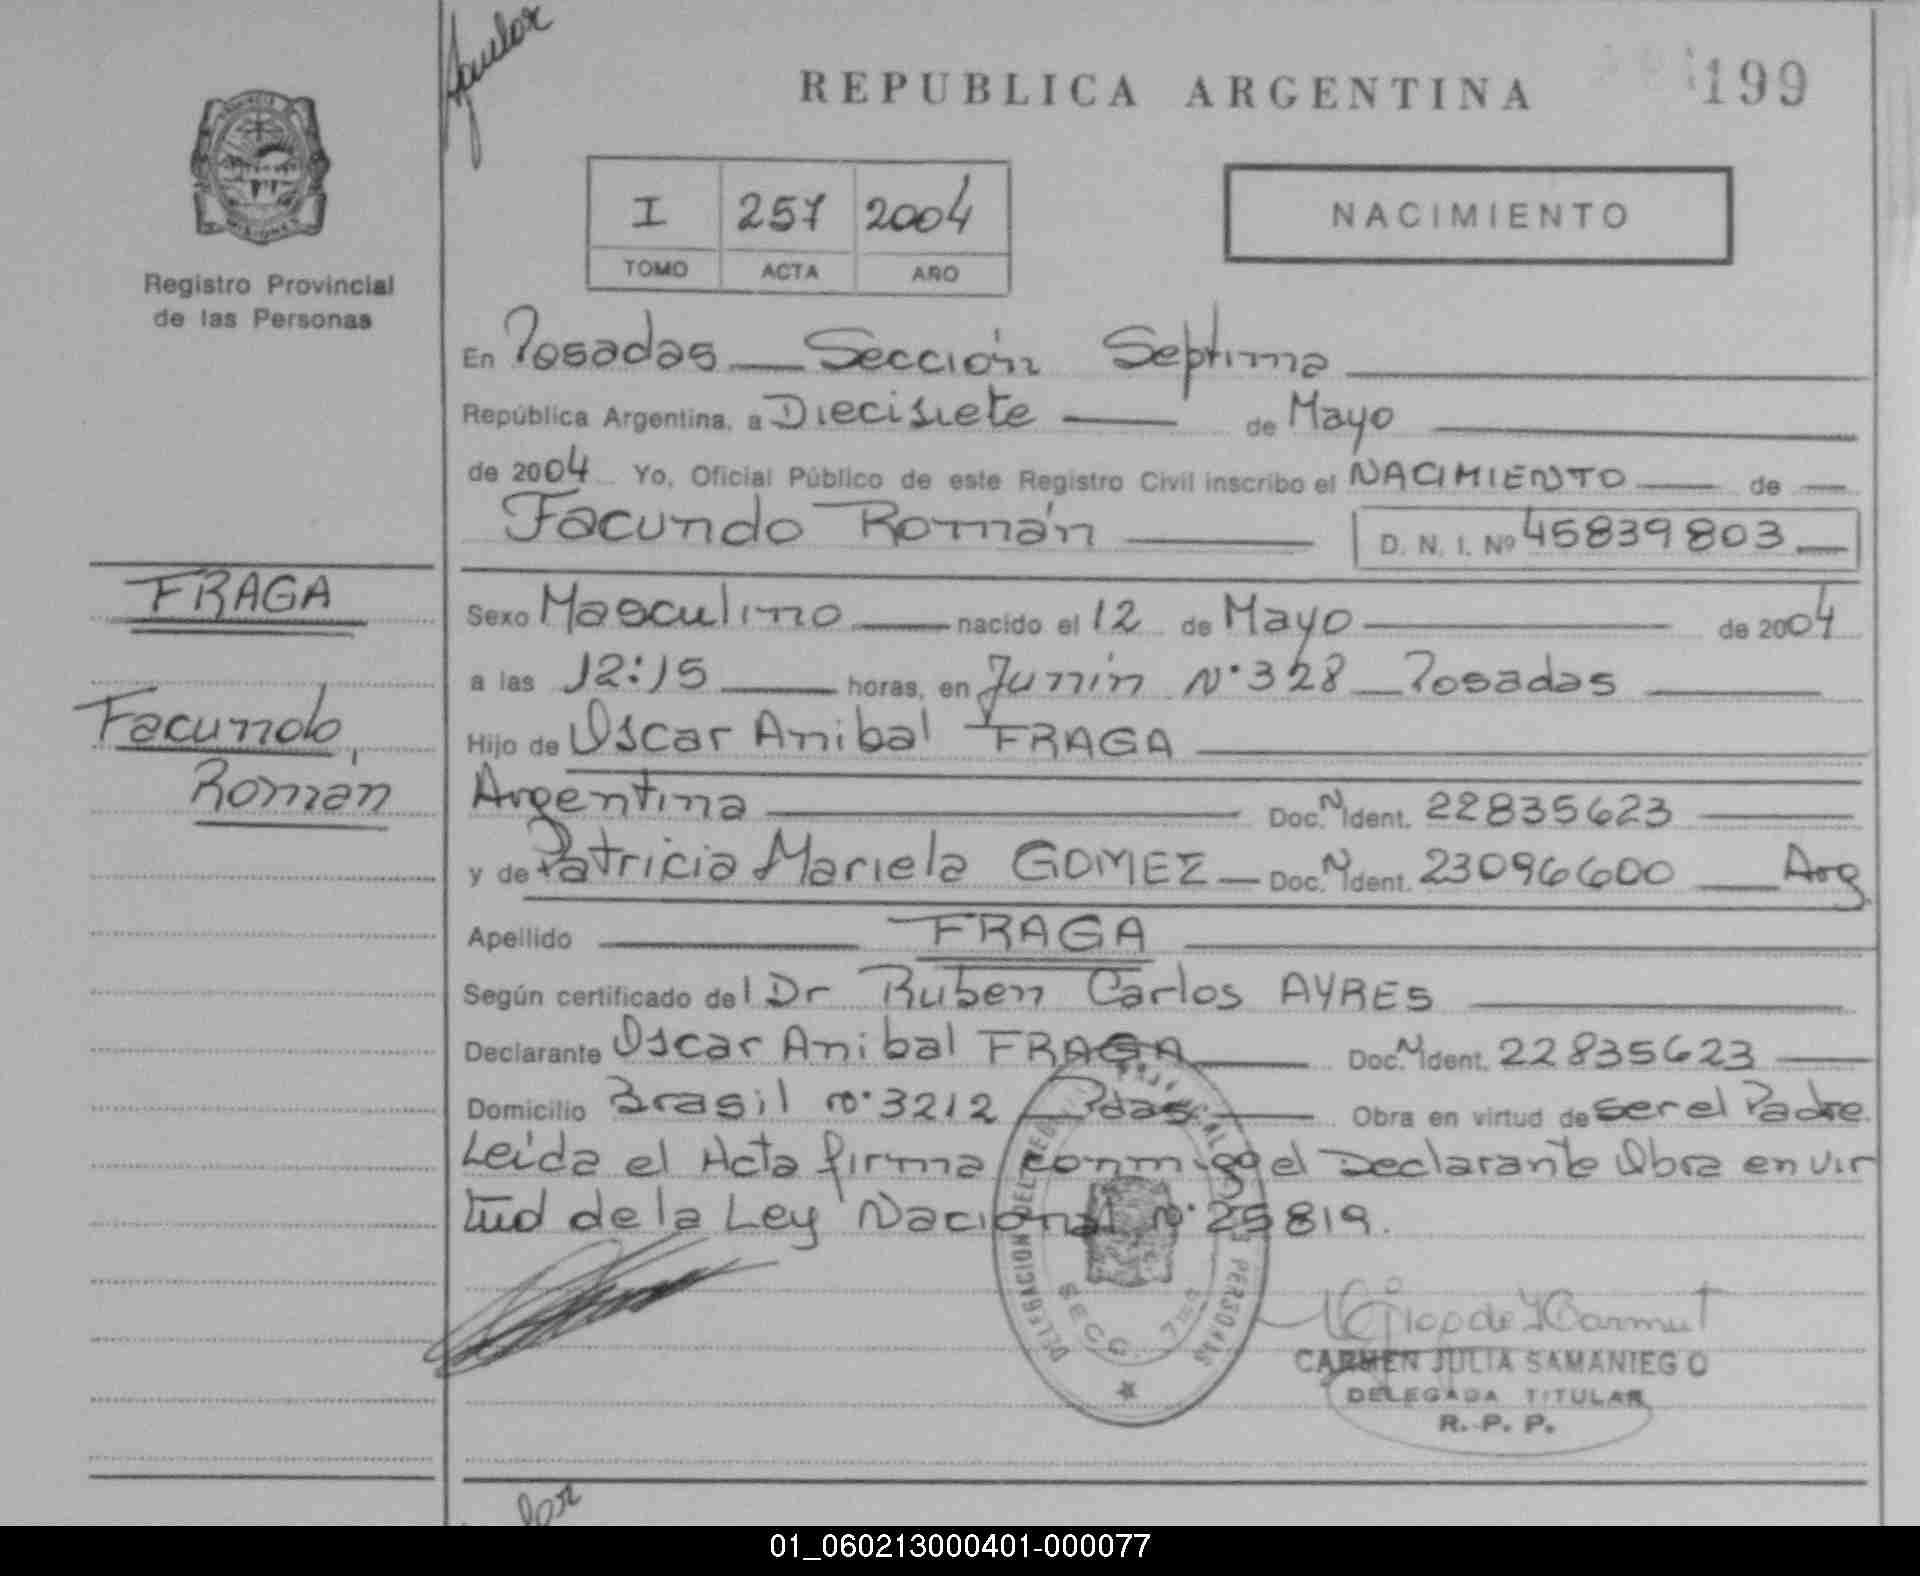 REPUBLICA ARGENTINA
199
Registro Provincial
de las Personas
I 257 2004
TOMO ACTA AÑO
NACIMIENTO
En Posadas — Sección Septima
República Argentina, a Diecisiete — de Mayo
de 2004 Yo, Oficial Público de este Registro Civil inscribo el NACIMIENTO — de —
Facundo Román — D. N. I. Nº 45839803 —
FRAGA
Facundo,
Román
Sexo Masculino — nacido el 12 de Mayo — de 2004
a las 12:15 — horas, en Junín Nº 328 — Posadas —
Hijo de Oscar Anibal FRAGA —
Argentina — Doc. N Ident. 22835623 —
y de Patricia Mariela GOMEZ — Doc. N Ident. 23096600 — Arg
Apellido — FRAGA —
Según certificado del Dr Ruben Carlos AYRES —
Declarante Oscar Anibal FRAGA — Doc. N Ident. 22835623 —
Domicilio Brasil nº 3212 — Pdas — Obra en virtud de ser el Padre.
Leida el Acta firma conmigo el Declarante Obra en vir
tud de la Ley Nacional Nº 25819.
DELEGACION DEL REG. PROVINCIAL DE PERSONAS
SECC. 7ma
CARMEN JULIA SAMANIEGO
DELEGADA TITULAR
R. P. P.
01_060213000401-000077